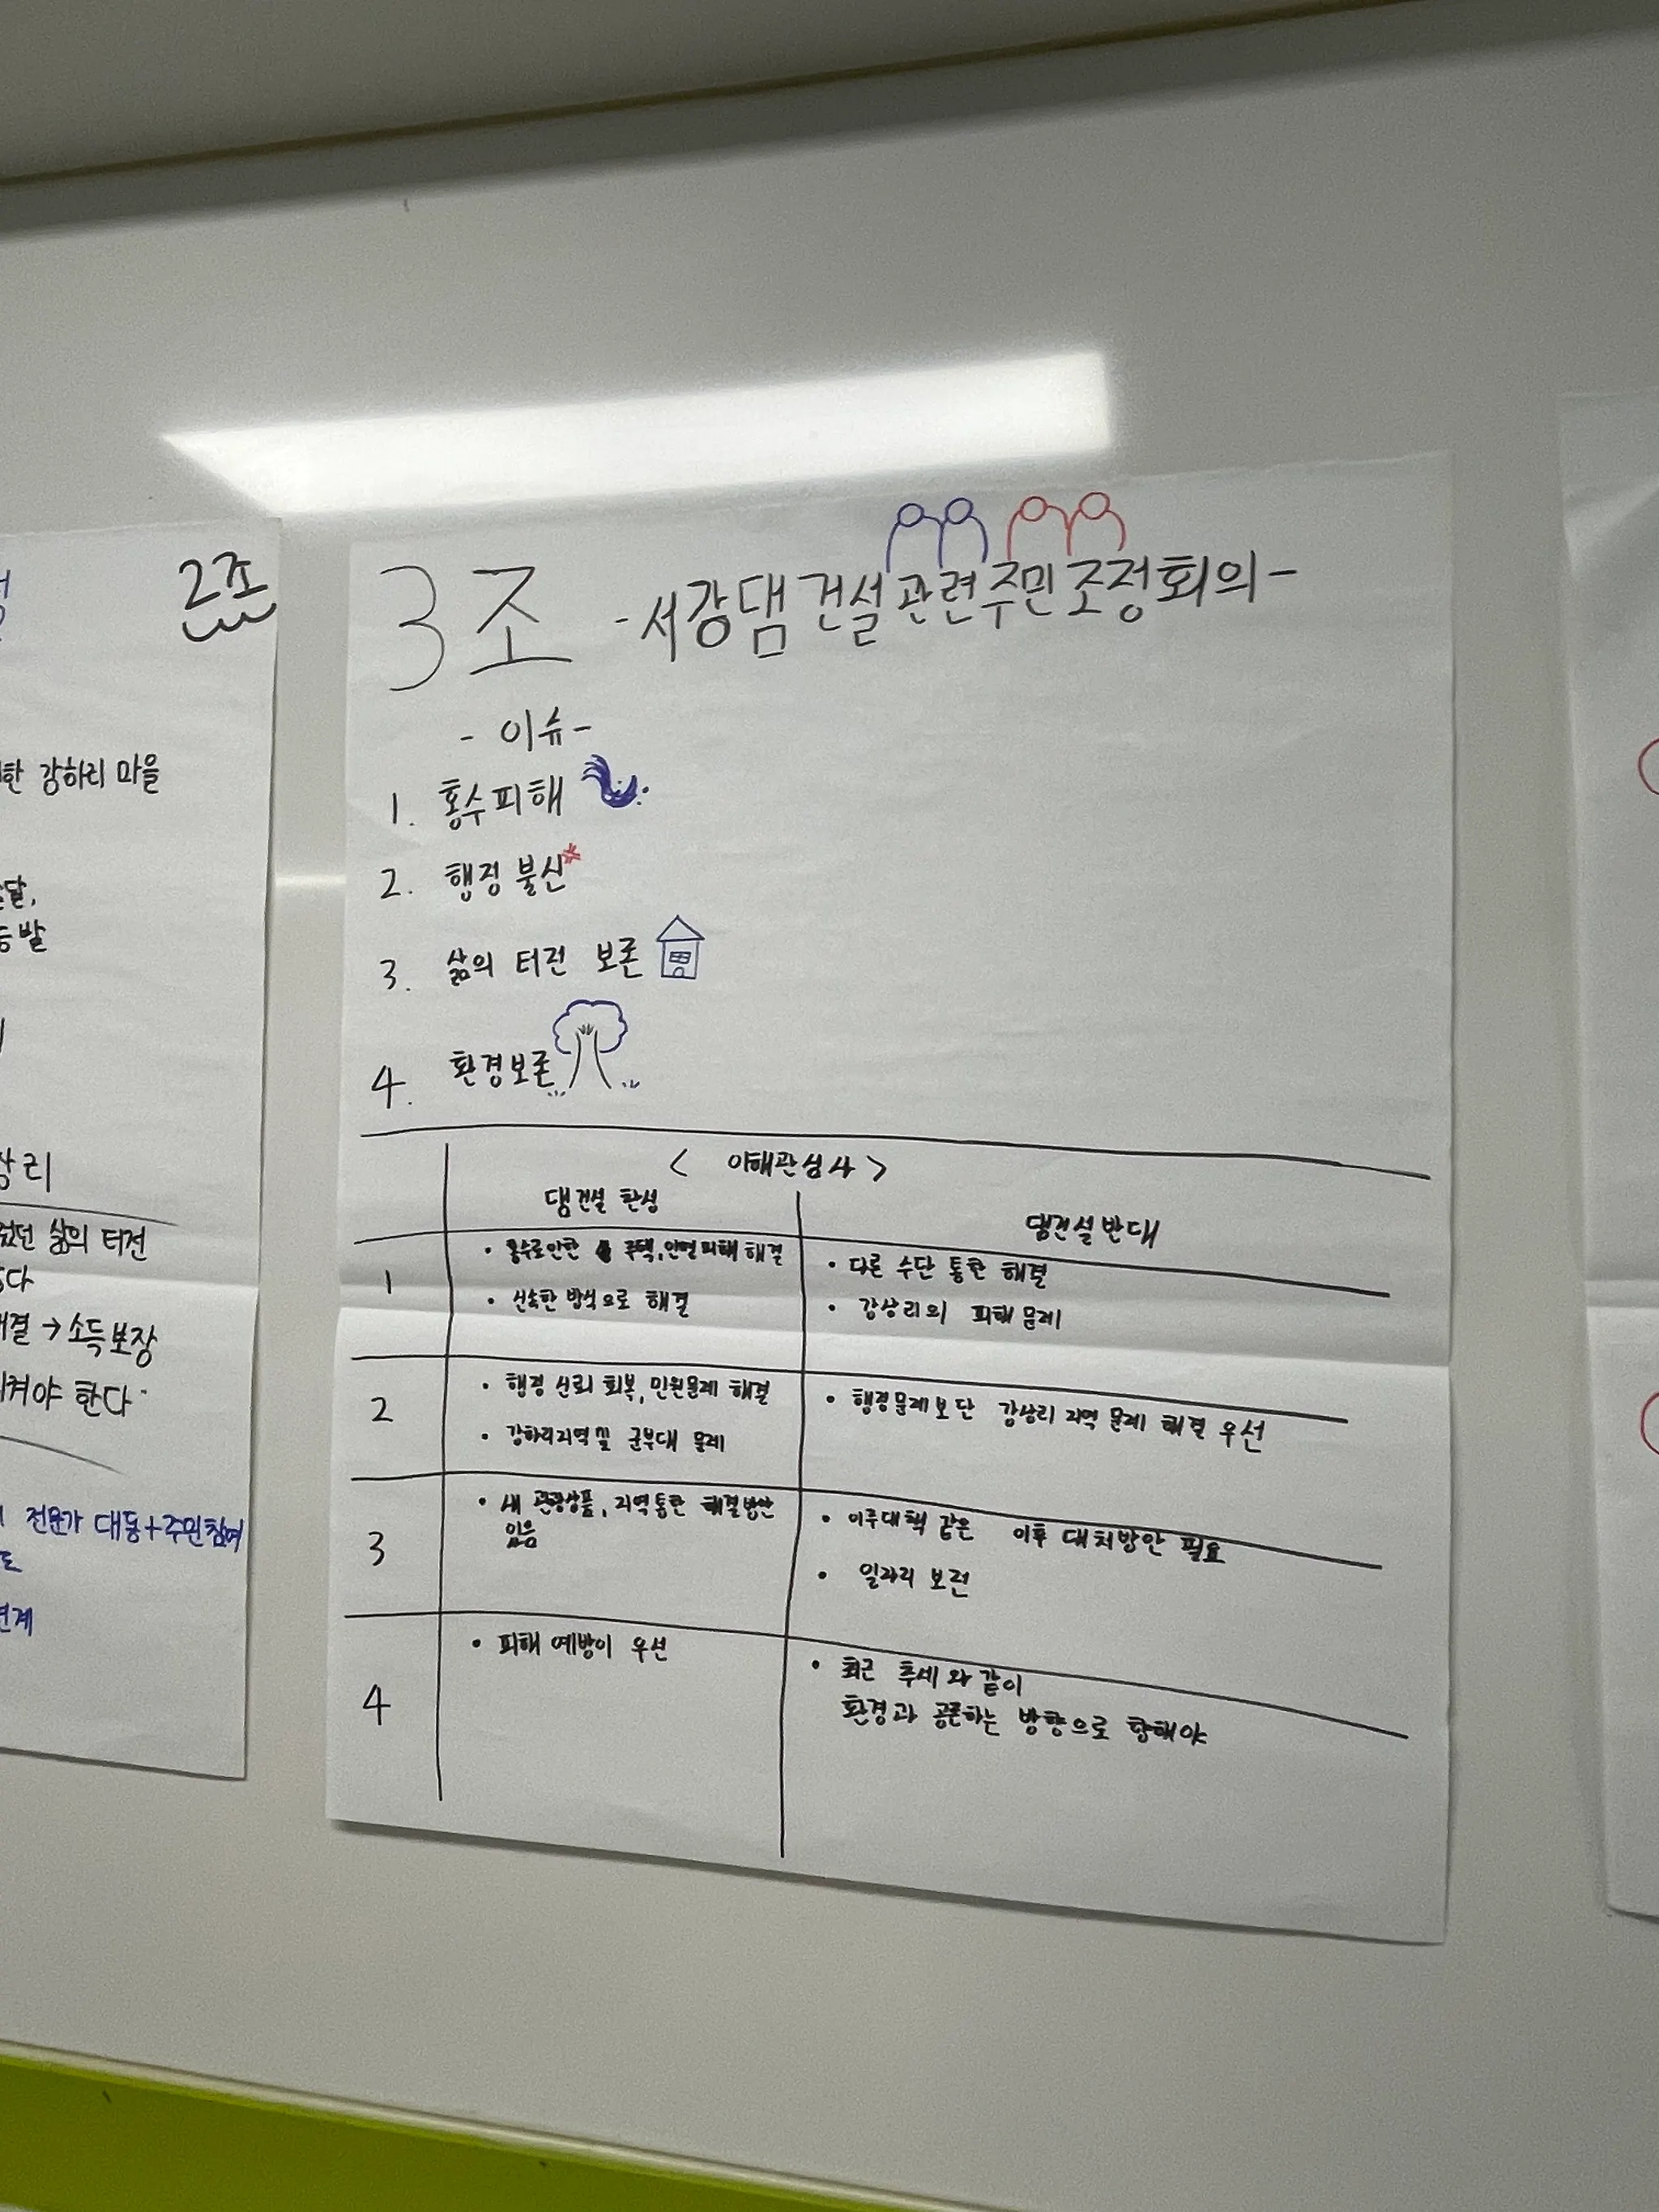 2조
한 강하리 마을
달,
발
리
던 삶의 터전
다
결 → 소득보장
켜야 한다
전문가 대동+주민참여
연계
3조 -서강댐 건설 관련 주민 조정회의-
- 이슈 -
1. 홍수피해
2. 행정 불신
3. 삶의 터전 보존
4. 환경보존
< 이해관심사 >
댐건설 찬성
댐건설 반대
1
• 홍수로인한 주택, 인명피해 해결
• 신속한 방식으로 해결
• 다른 수단 통한 해결
• 강상리의 피해 문제
2
• 행정 신뢰 회복, 민원문제 해결
• 강하리지역 및 군부대 문제
• 행정문제보단 강상리 지역 문제 해결 우선
3
• 새 관광상품, 지역통한 해결방안
있음
• 이주대책 같은 이후 대처방안 필요
• 일자리 보전
4
• 피해 예방이 우선
• 최근 추세와 같이
환경과 공존하는 방향으로 향해야